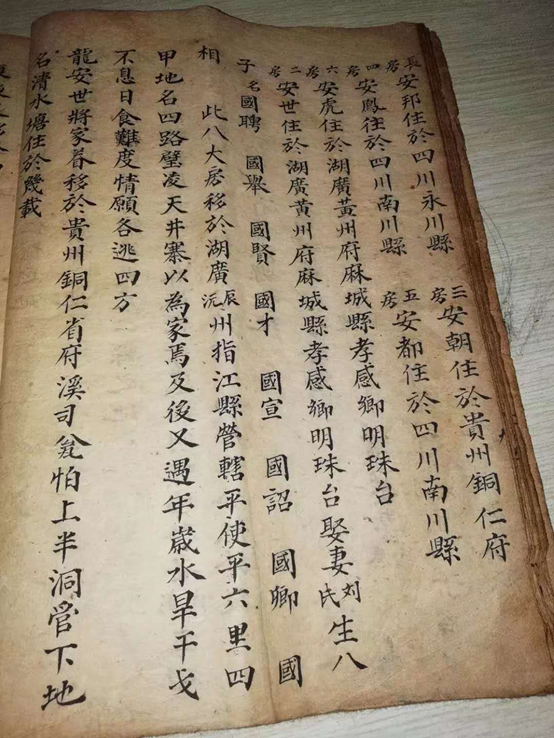 長房安邦住於四川永川縣 三房安朝住於貴州銅仁府
四房安鳳住於四川南川縣 五房安都住於四川南川縣
六房安虎住於湖廣黃州府麻城縣孝感鄉明珠台
二房安世住於湖廣黃州府麻城縣孝感鄉明珠台娶妻刘氏生八
子名國聘 國舉 國賢 國才 國宣 國詔 國卿 國
相 此八大房移於湖廣辰沅州指江縣管轄平使平六里四
甲地名四路壁凌天井寨以為家焉及後又遇年歲水旱干戈
不息日食難度情願各逃四方
龍安世將家眷移於貴州銅仁省府溪司瓮怕上半洞管下地
名清水塘住於幾載